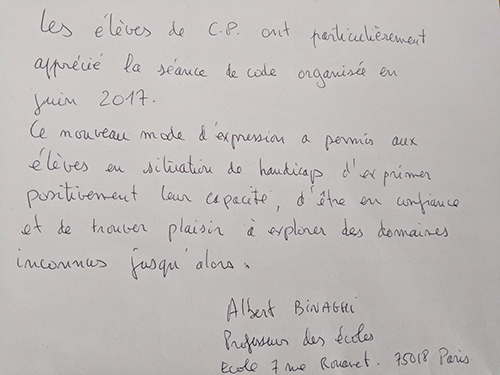 Les élèves de C.P. ont particulièrement
apprécié la séance de code organisée en
juin 2017.
Ce nouveau mode d'expression a permis aux
élèves en situation de handicaps d'exprimer
positivement leur capacité, d'être en confiance
et de trouver plaisir à explorer des domaines
inconnus jusqu'alors.
Albert BINAGHI
Professeur des écoles
Ecole 7 rue Rouanet. 75018 Paris.